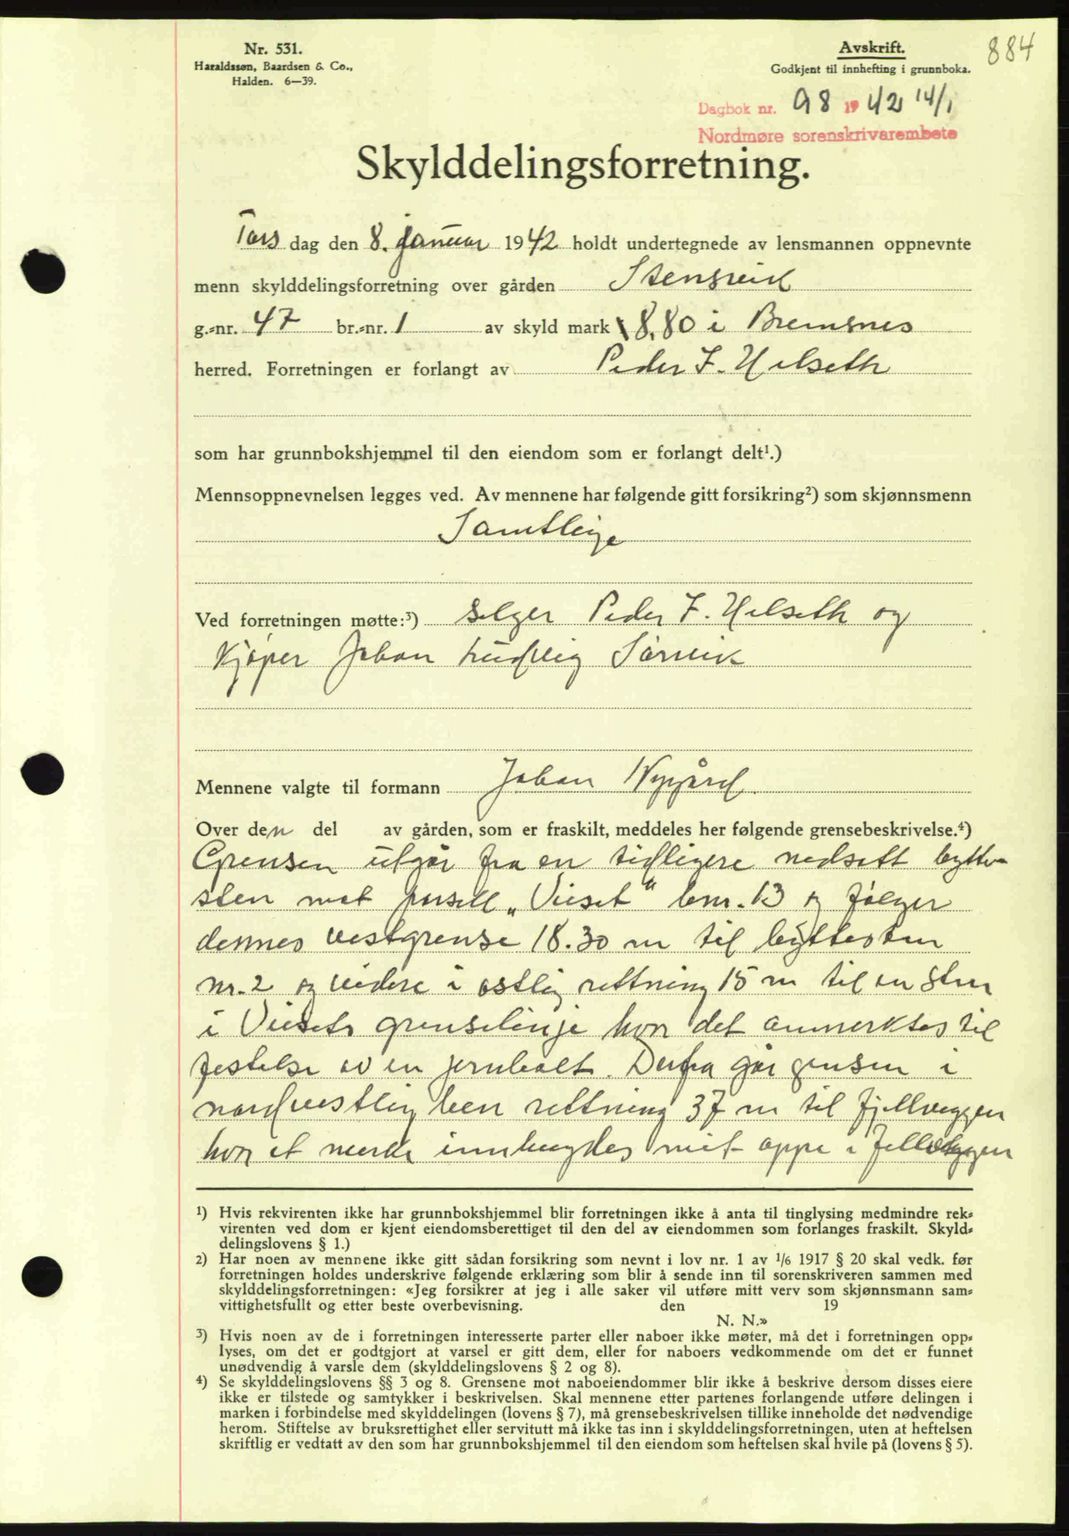 Nr. 531.
Haraldssøn, Baardsen & Co.,
Halden. 6—39.
Avskrift.
Godkjent til innhefting i grunnboka.
884
Dagbok nr. 98 1942 14/1
Nordmøre sorenskrivarembete
Skylddelingsforretning.
Tors dag den 8. januar 1942 holdt undertegnede av lensmannen oppnevnte
menn skylddelingsforretning over gården Stensreid
g.-nr. 47 br.-nr. 1 av skyld mark 8,80 i Bremsnes
herred. Forretningen er forlangt av Peder F. Helseth
som har grunnbokshjemmel til den eiendom som er forlangt delt¹.)
Mennsoppnevnelsen legges ved. Av mennene har følgende gitt forsikring²) som skjønnsmenn
Samtlige
Ved forretningen møtte:³) Selger Peder F. Helseth og
kjøper Johan Ludvig Sørvik
Mennene valgte til formann Johan Nygård.
Over den del av gården, som er fraskilt, meddeles her følgende grensebeskrivelse.⁴)
Grensen utgår fra en tidligere nedsatt bytte-
sten mot parsell „Vieset" bnr. 13 og følger
dennes vestgrense 18.30 m til byttesten
nr. 2 og videre i østlig rettning 15 m til en sten
i Viesets grenselinje hvor det anmerktes til
festelse av en jernbolt. Derfra går gensen i
nordvestlig ben rettning 37 m til fjellveggen
hvor et merke innhugdes mit oppe i fjellveggen
¹) Hvis rekvirenten ikke har grunnbokshjemmel blir forretningen ikke å anta til tinglysing medmindre rek-
virenten ved dom er kjent eiendomsberettiget til den del av eiendommen som forlanges fraskilt. Skyld-
delingslovens § 1.)
²) Har noen av mennene ikke gitt sådan forsikring som nevnt i lov nr. 1 av 1/6 1917 § 20 skal vedk. før
forretningen holdes underskrive følgende erklæring som blir å sende inn til sorenskriveren sammen med
skylddelingsforretningen: «Jeg forsikrer at jeg i alle saker vil utføre mitt verv som skjønnsmann sam-
vittighetsfullt og etter beste overbevisning. den 19
N. N.»
³) Hvis noen av de i forretningen interesserte parter eller naboer ikke møter, må det i forretningen opp-
lyses, om det er godtgjort at varsel er gitt dem, eller for naboers vedkommende om det er funnet
unødvendig å varsle dem (skylddelingslovens § 2 og 8).
⁴) Se skylddelingslovens §§ 3 og 8. Grensene mot naboeiendommer blir ikke å beskrive dersom disses eiere
ikke er tilstede og samtykker i beskrivelsen. Skal mennene etter partenes forlangende utføre delingen i
marken i forbindelse med skylddelingen (lovens § 7), må grensebeskrivelsen tillike inneholde det nødvendige
herom. Stiftelse av bruksrettighet eller servitutt må ikke tas inn i skylddelingsforretningen, uten at heftelsen
skriftlig er vedtatt av den som har grunnbokshjemmel til den eiendom som heftelsen skal hvile på (lovens § 5).